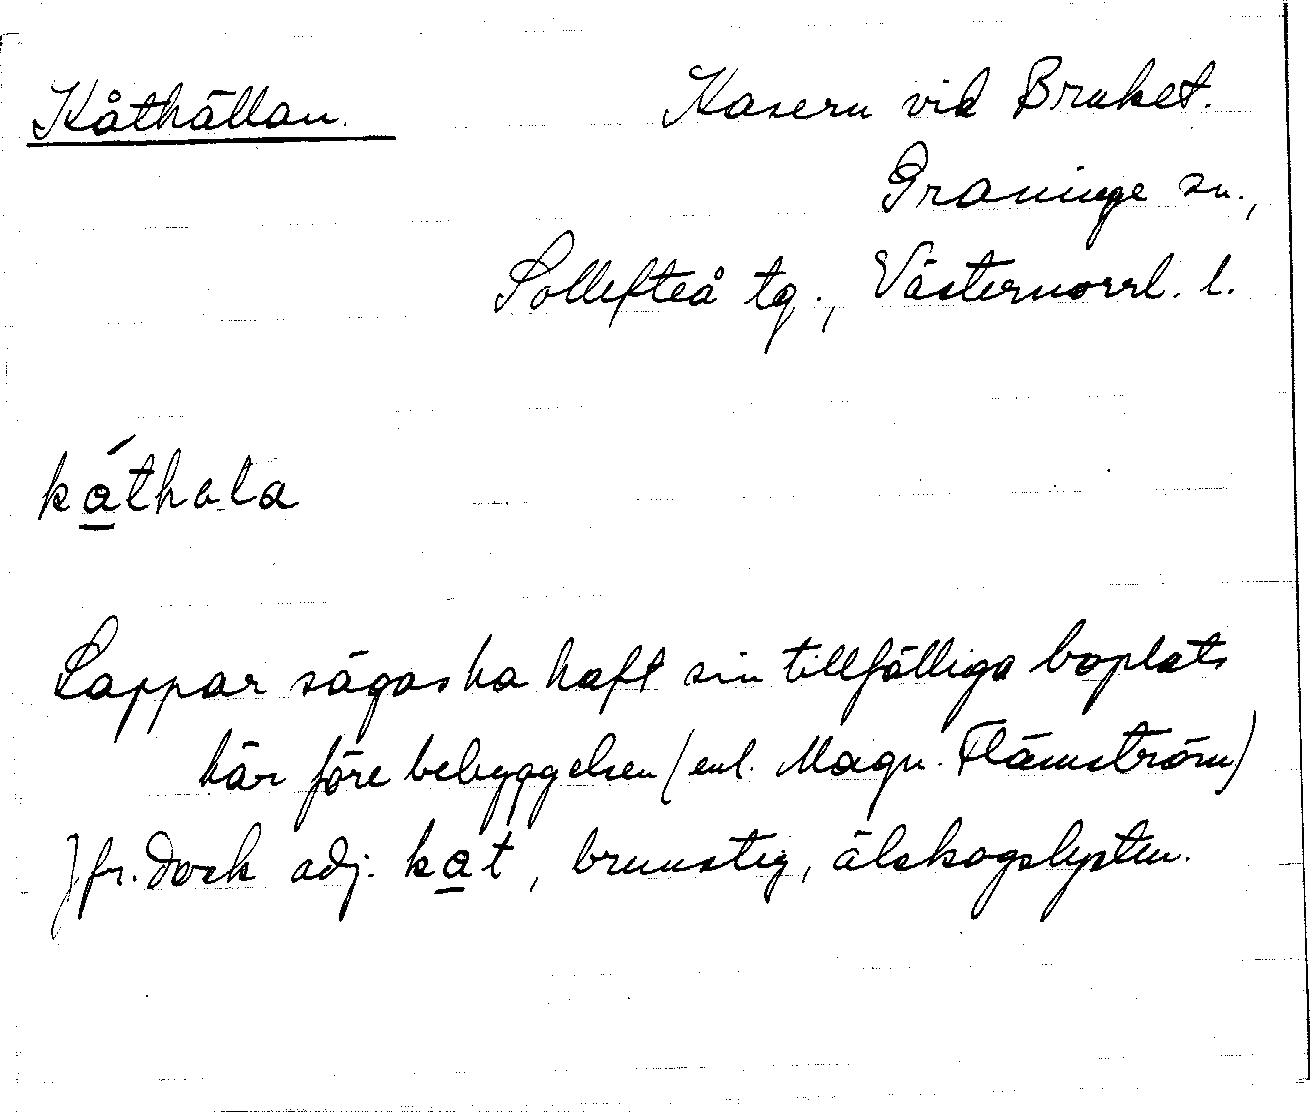 Kåthällan.
Kasern vid Bruket.
Graninge sn.,
Sollefteå tg., Västernorrl. l.
ká̲thalα
Lappar sägas ha haft sin tillfälliga boplats
här före bebyggelsen (enl. Magn. Flämström)
Jfr. dock adj. ka̲t, brunstig, älskogslysten.